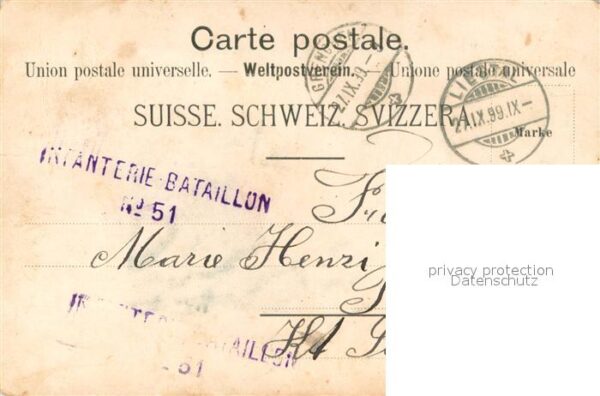 Carte postale.
Union postale universelle. — Weltpostverein. — Unione postale universale
SUISSE. SCHWEIZ. SVIZZERA
Marke
27.IX.99.IX–
INFANTERIE-BATAILLON
No 51
Marie Henzi
privacy protection
Datenschutz
BATAILLON
51
Kt